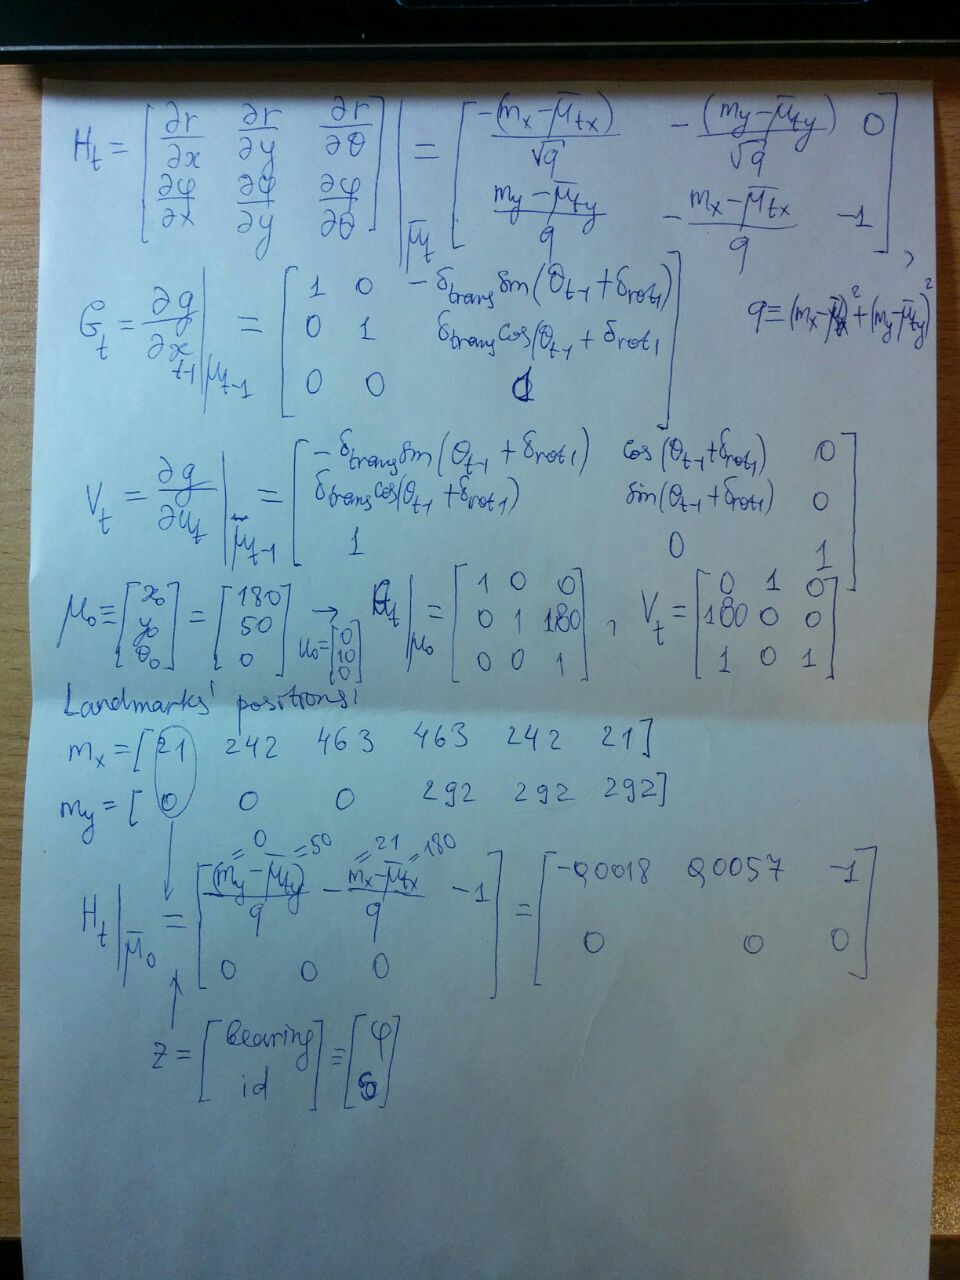 H_t = [∂r/∂x ∂r/∂y ∂r/∂θ; ∂φ/∂x ∂φ/∂y ∂φ/∂θ] |_μ̄t = [-(m_x-μ̄_tx)/√q -(m_y-μ̄_ty)/√q 0; (m_y-μ̄_ty)/q -(m_x-μ̄_tx)/q -1],
G_t = ∂g/∂x_t-1 |_μt-1 = [1 0 -δ_trans sin(θ_t-1 + δ_rot1); 0 1 δ_trans cos(θ_t-1 + δ_rot1); 0 0 1] q ≡ (m_x-μ̄_tx)² + (m_y-μ̄_ty)²
V_t = ∂g/∂u_t |_μt-1 = [-δ_trans sin(θ_t-1 + δ_rot1) cos(θ_t-1+δ_rot1) 0; δ_trans cos(θ_t-1 + δ_rot1) sin(θ_t-1+δ_rot1) 0; 1 0 1]
μ_0 ≡ [x_0; y_0; θ_0] = [180; 50; 0] → u_0=[0; 10; 0] G_t |_μ0 = [1 0 0; 0 1 180; 0 0 1], V_t = [0 1 0; 180 0 0; 1 0 1]
Landmarks' positions:
m_x = [21 242 463 463 242 21]
m_y = [0 0 0 292 292 292]
=0 =50 =21 =180
H_t |_μ̄0 = [(m_y-μ̄_ty)/q -(m_x-μ̄_tx)/q -1; 0 0 0] = [-0,0018 0,0057 -1; 0 0 0]
z = [bearing; id] = [φ; s]